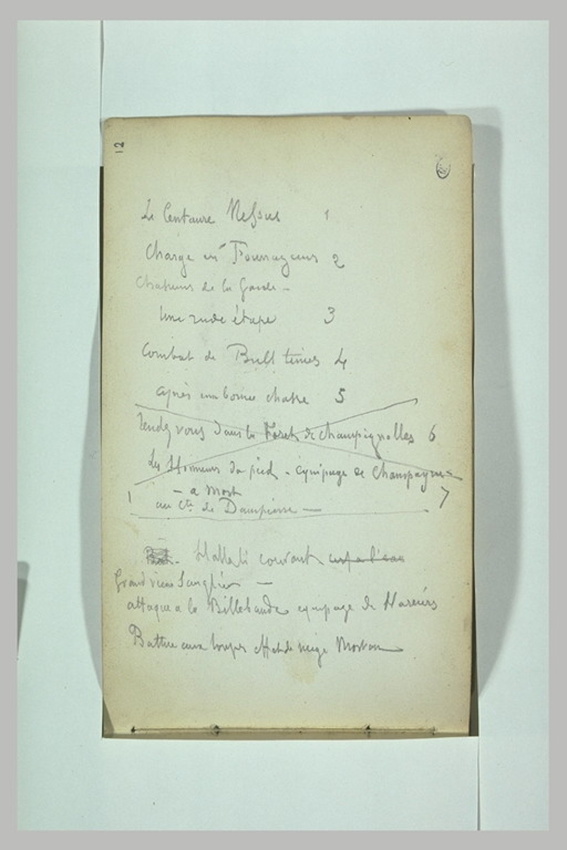 12
Le Centaure Nessus 1
Charge en Fourrageurs 2
Chasseurs de la Garde -
Une rude étape 3
Combat de Bull terries 4
après une bonne chasse 5
Rendez vous dans la Foret de Champignolles 6
Les Honneurs du pied - équipage de Champagne
- a Mort 7
au Cte de Dampierre -
Hallali courant
Grand vieux Sanglier -
attaque a la Billebaude equipage de
Battue aux loups effet de neige